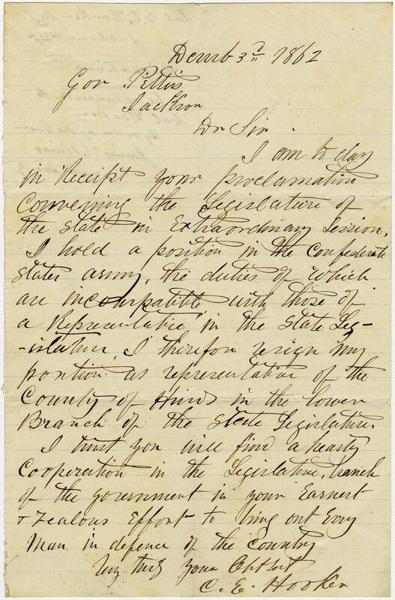 Decmb 3rd 1862
Gov Pettus
Jackson
Dr Sir
I am to day
in Receipt your proclamation
Convening the Legislature of
the State in Extraordinary Session.
I hold a position in the Confederate
States army, the duties of which
are incompatible with those of
a Representative in the State Leg-
-islature, I therefor resign my
position as representative of the
County of Hinds in the lower
Branch of the State Legislature.
I trust you will find a hearty
Cooperation in the Legislative branch
of the government in your Earnest
& Zealous Effort to bring out Evry
Man in defence of the Country
Very truly Your Obt Svt
C. E. Hooker